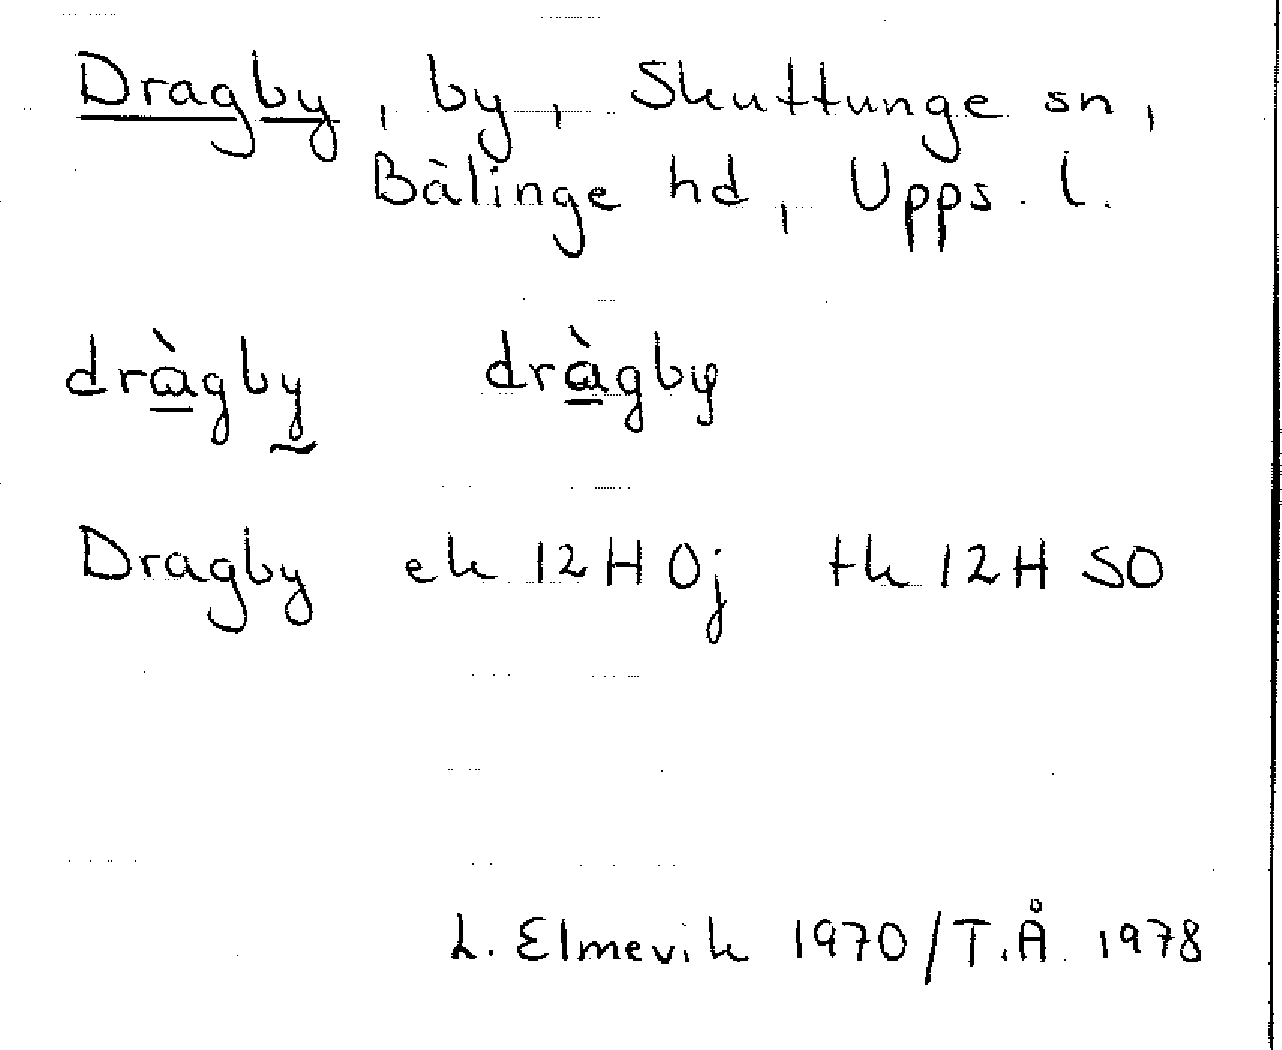 Dragby, by, Skuttunge sn,
Bälinge hd, Upps. l.
dràgby dràgby
Dragby ek 12H 0j tk 12H SO
L. Elmevik 1970/T.Å. 1978